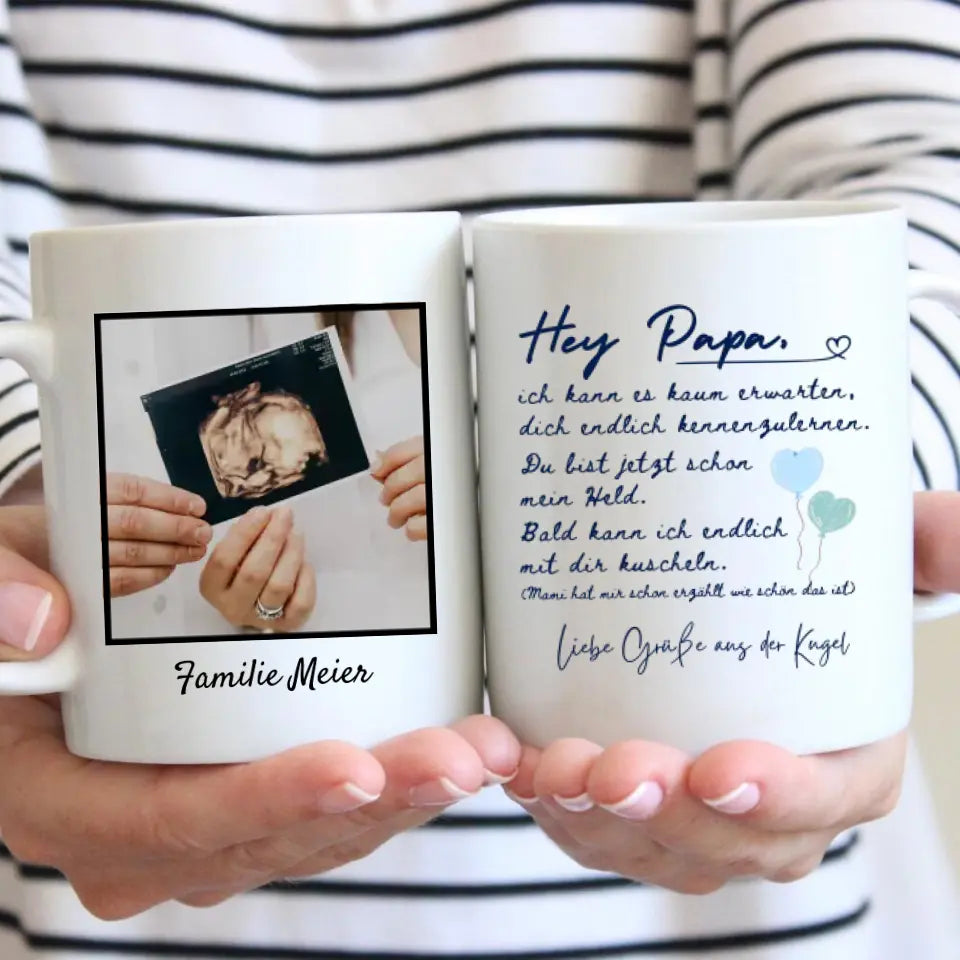 Familie Meier
Hey Papa,
ich kann es kaum erwarten,
dich endlich kennenzulernen.
Du bist jetzt schon
mein Held.
Bald kann ich endlich
mit dir kuscheln.
(Mami hat mir schon erzählt wie schön das ist)
Liebe Grüße aus der Kugel